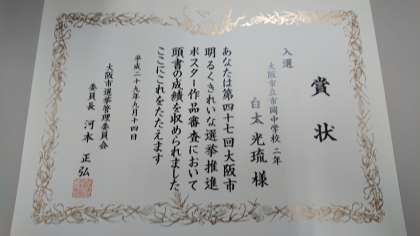 賞状
入選
大阪市立市岡中学校 二年
白太 光琉 様
あなたは第四十七回大阪市
明るくきれいな選挙推進
ポスター作品審査において
頭書の成績を収められました
ここにこれをたたえます
平成二十九年九月十四日
大阪市選挙管理委員会
委員長 河本 正弘